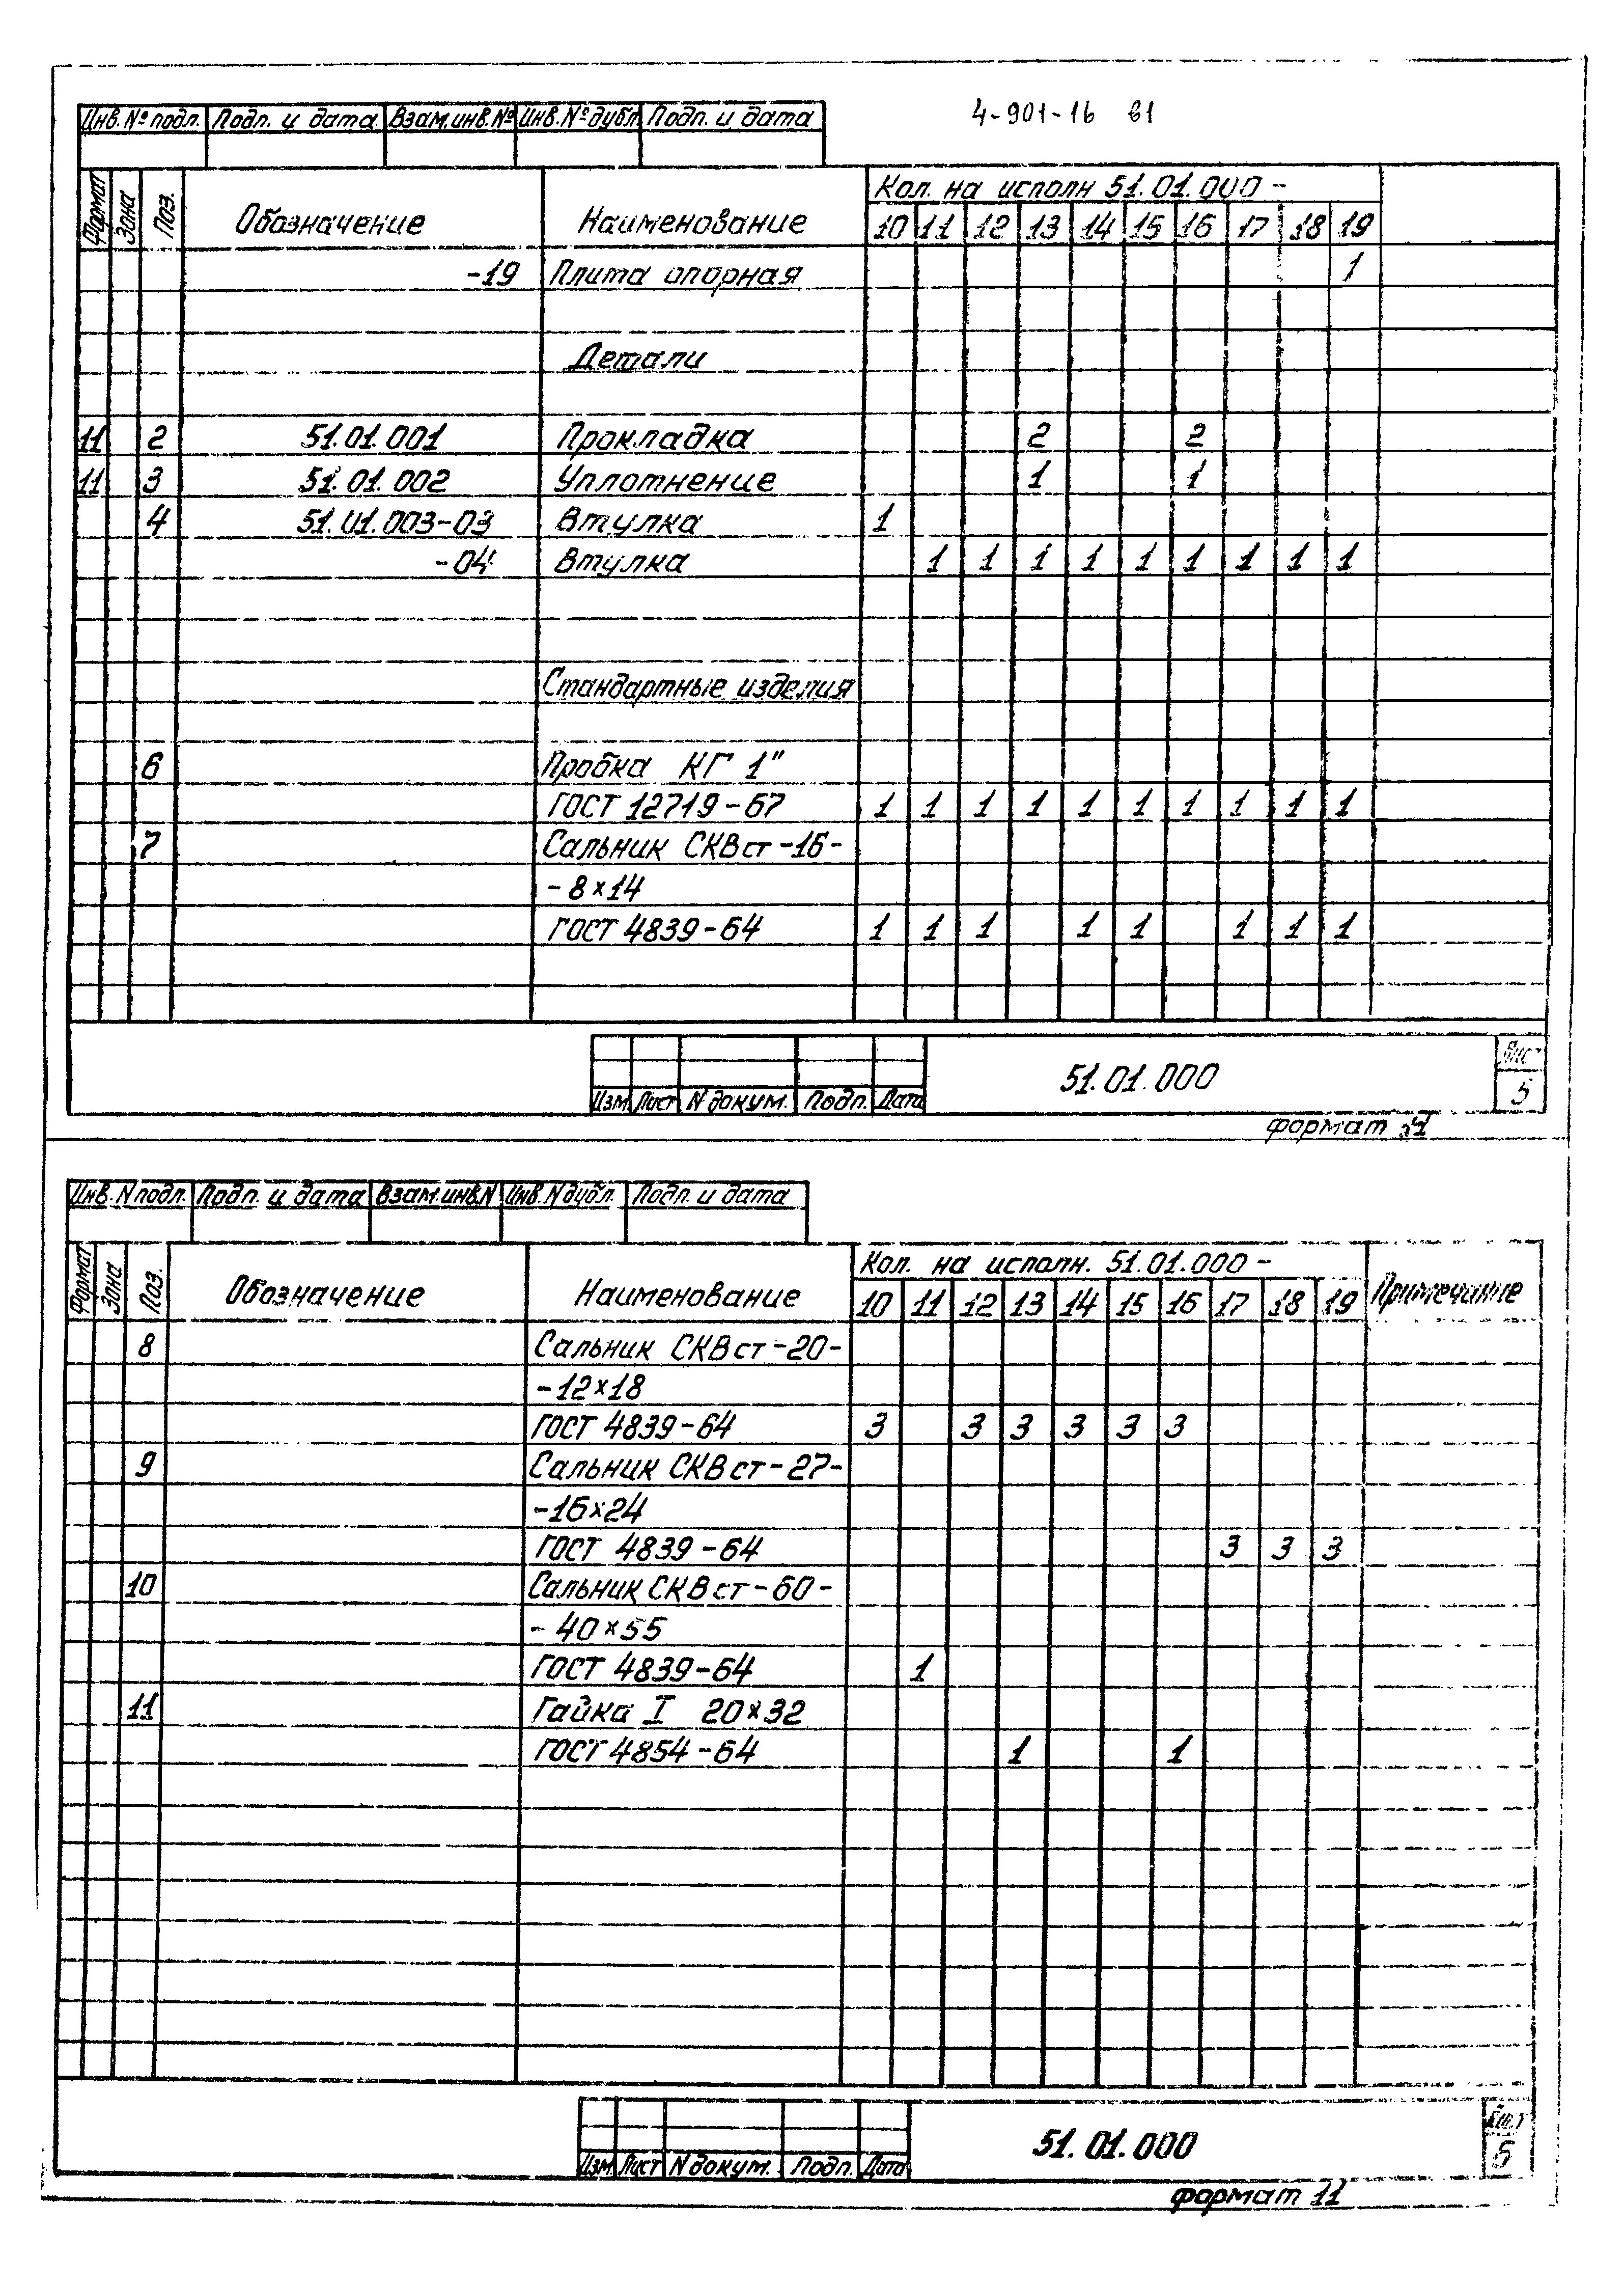 4-901-16 в1
Инв.№ подл. Подп. и дата Взам.инв.№ Инв.№ дубл. Подп. и дата
Формат Зона Поз. Обозначение Наименование Кол. на исполн 51.01.000 -
10 11 12 13 14 15 16 17 18 19
-19 Плита опорная 1
Детали
11 2 51.01.001 Прокладка 2 2
11 3 51.01.002 Уплотнение 1 1
4 51.01.003-03 Втулка 1
-04 Втулка 1 1 1 1 1 1 1 1 1
Стандартные изделия
6 Пробка КГ 1"
ГОСТ 12719-67 1 1 1 1 1 1 1 1 1 1
7 Сальник СКВст-16-
-8×14
ГОСТ 4839-64 1 1 1 1 1 1 1 1
Изм Лист N докум. Подп. Дата 51.01.000 Лист
5
формат
Инв. N подл. Подп. и дата Взам.инв.N Инв. N дубл. Подп. и дата
Формат Зона Поз. Обозначение Наименование Кол. на исполн. 51.01.000 - Примечание
10 11 12 13 14 15 16 17 18 19
8 Сальник СКВст-20-
-12×18
ГОСТ 4839-64 3 3 3 3 3 3
9 Сальник СКВст-27-
-16×24
ГОСТ 4839-64 3 3 3
10 Сальник СКВст-60-
- 40×55
ГОСТ 4839-64 1
11 Гайка I 20×32
ГОСТ 4854-64 1 1
Изм Лист N докум. Подп. Дата 51.01.000 Лист
формат 11